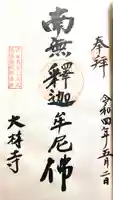 奉拝
令和四年五月二日
南無釋迦牟尼佛
大林寺